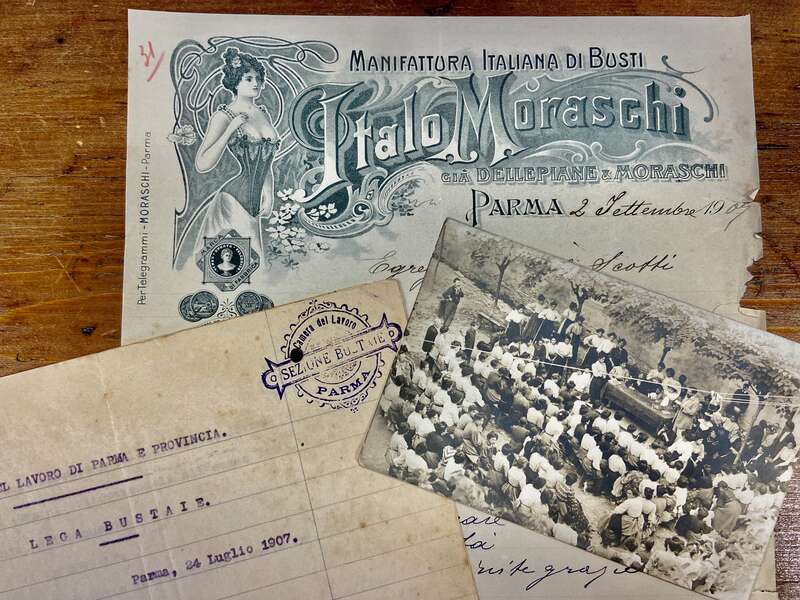 31
MANIFATTURA ITALIANA DI BUSTI
Italo Moraschi
GIÀ DELLEPIANE & MORASCHI
PARMA 2 Settembre 1907
Per Telegrammi - MORASCHI - Parma
Scotti
Camera del Lavoro
SEZIONE BUSTAIE
PARMA
EL LAVORO DI PARMA E PROVINCIA.
LEGA BUSTAIE.
Parma, 24 Luglio 1907.